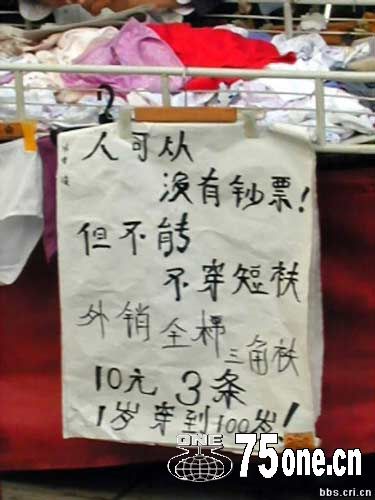 人可从
没有钞票!
但不能
不穿短扶
外销全棉
三角扶
10元 3条
1岁穿到100岁!
ONE 75one.cn
bbs.cri.cn